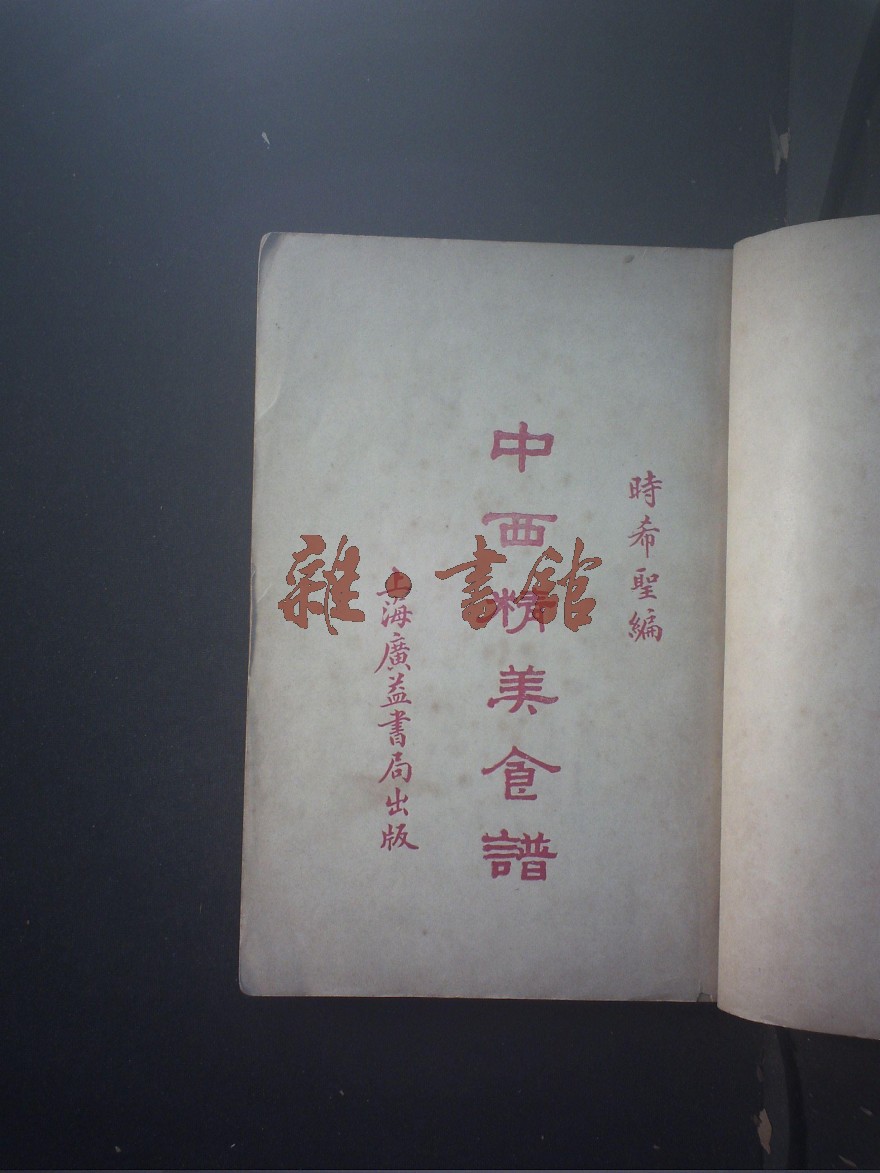 時希聖編
中西精美食譜
上海廣益書局出版
雜·書館